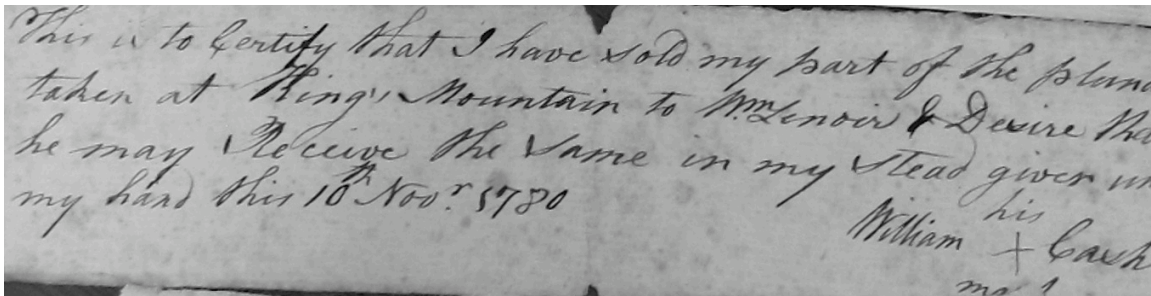 This is to Certify that I have sold my part of the plund
taken at King's Mountain to Wm Lenoir & Desire tha
he may Receive the same in my stead given un
my hand this 10th Novr. 1780
his
William + Cash